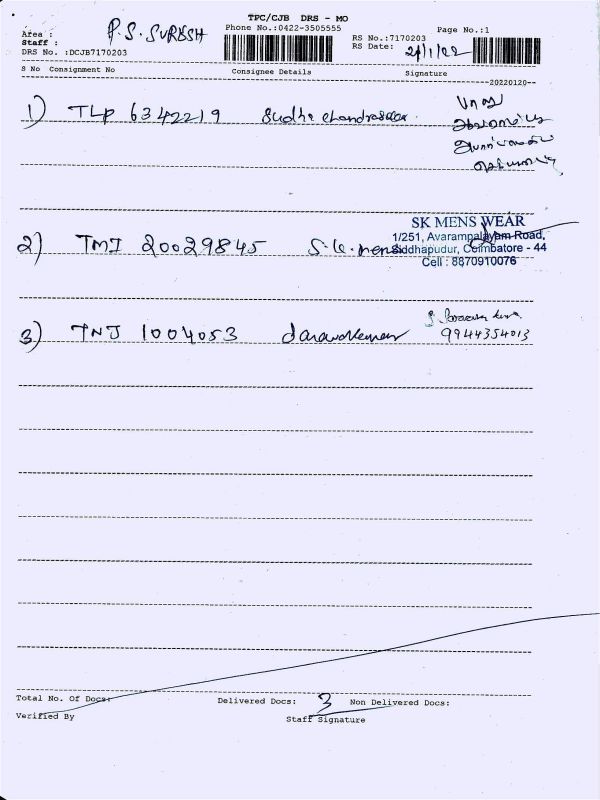 TPC/CJB DRS - MO
Phone No.:0422-3505555
Page No.:1
Area :
P.S. SURESH
Staff :
RS No.:7170203
DRS No. :DCJB7170203
RS Date: 21/1/22
S No Consignment No Consignee Details Signature
20220120
1) TLP 6342219 Sudha chandrasekar
2) TMI 20029845 S.K. mens
SK MENS WEAR
1/251, Avarampalayam Road,
Siddhapudur, Coimbatore - 44
Cell : 8870910076
3) TNJ 1004053 Saravanakumar
9944354013
Total No. Of Docs: Delivered Docs: 3 Non Delivered Docs:
Verified By Staff Signature